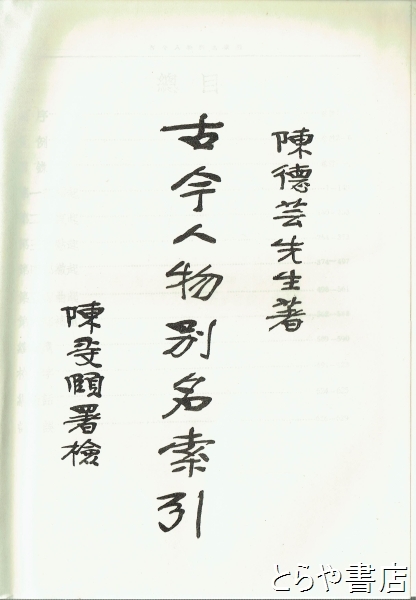 陳德芸先生著
古今人物別名索引
陳受頤署檢
とらや書店